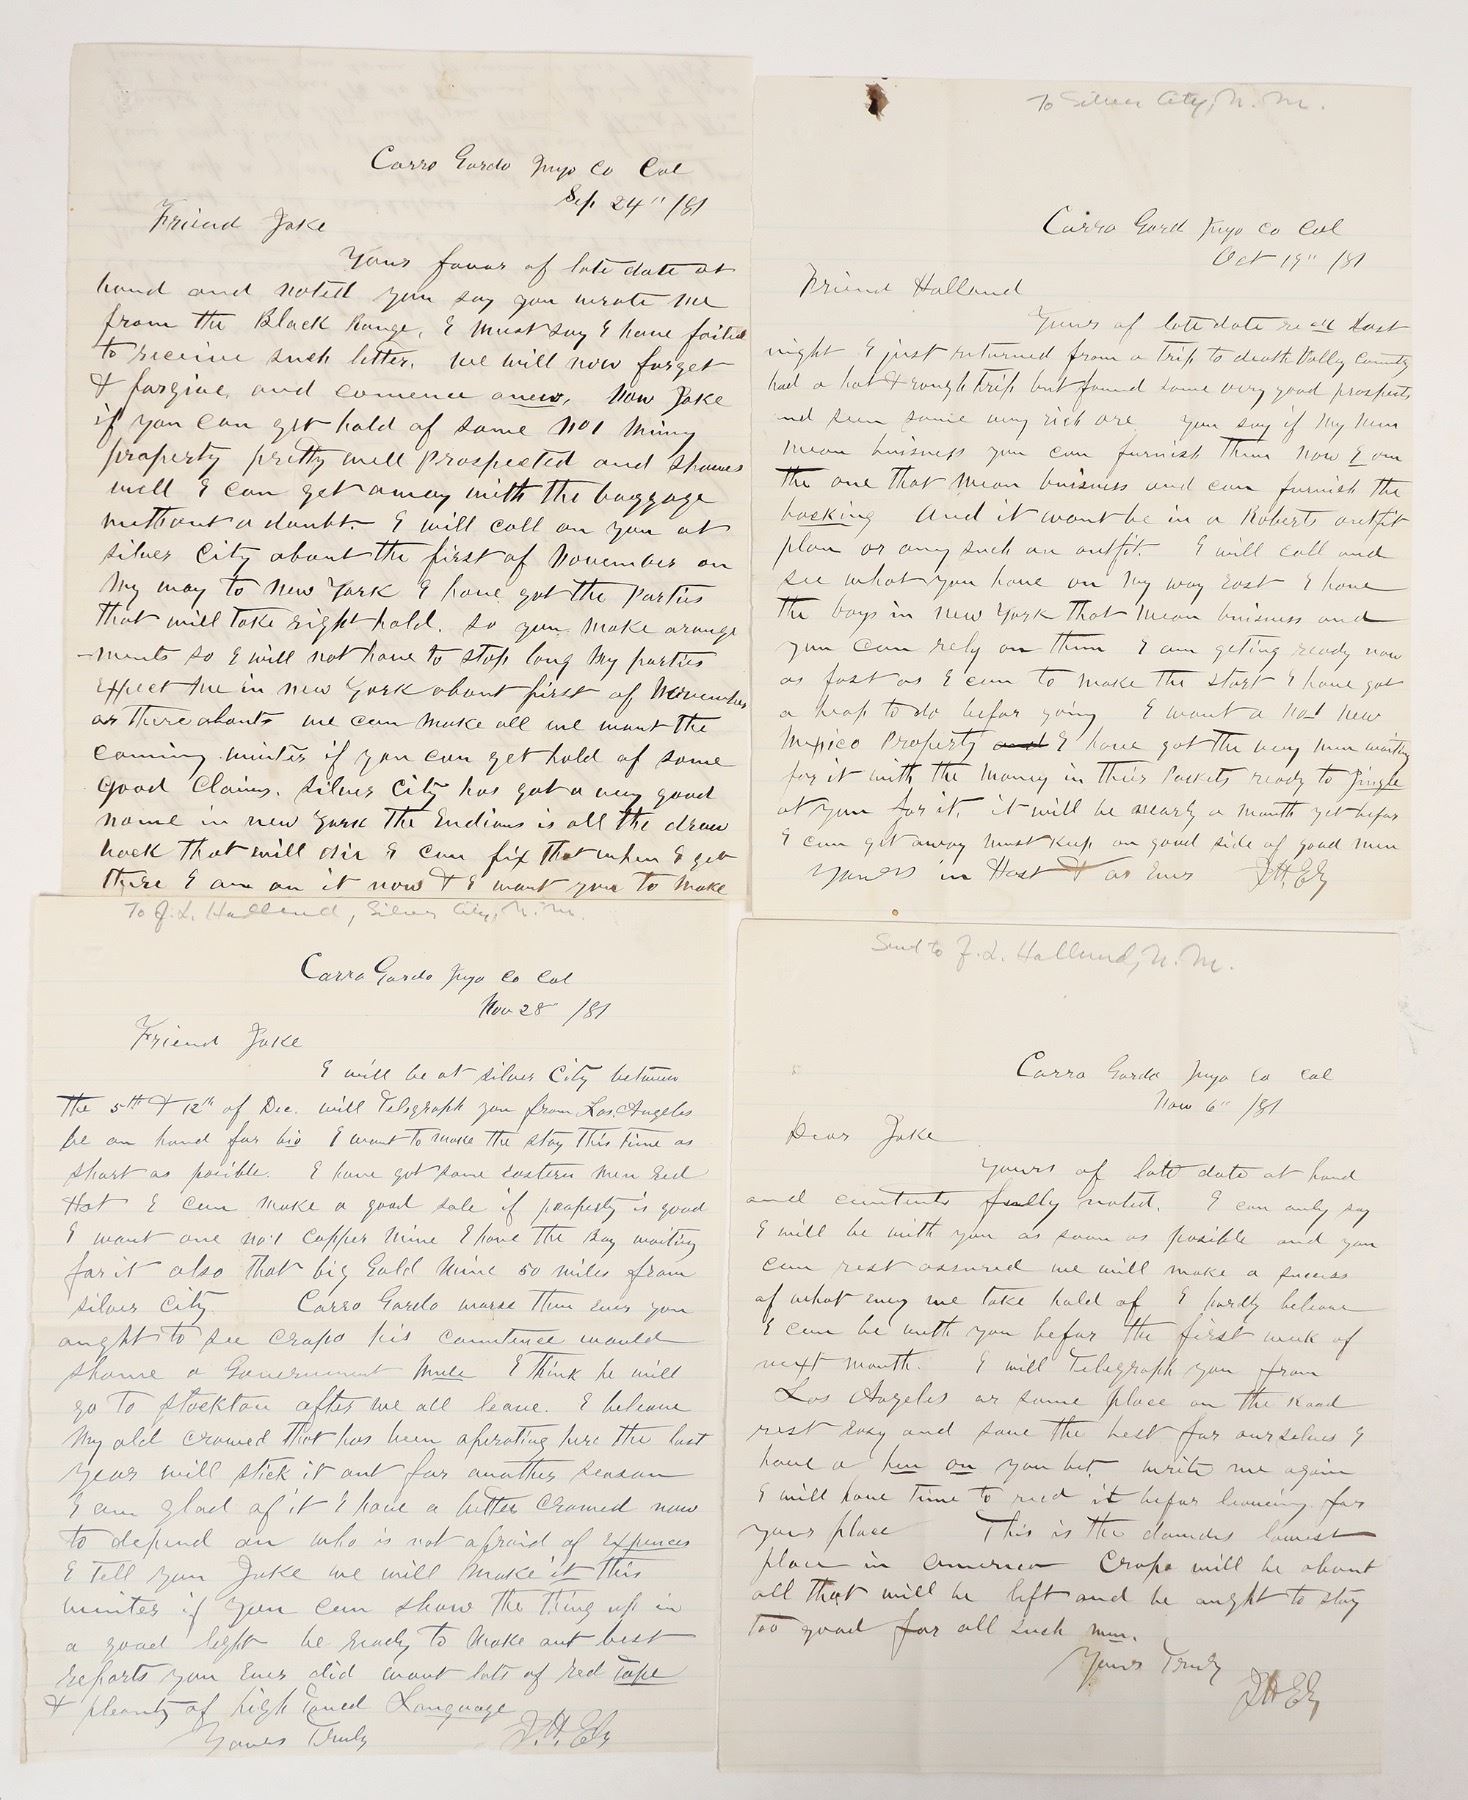 Carro Gordo Inyo Co Cal
Sep 24" /81
Friend Jake
Yours favor of late date at
hand and noted you say you wrote me
from the Black Range, I must say I have failed
to receive such letter, we will now forget
& forgive and comence anew. Now Jake
if you can get hold of some No 1 Mining
property pretty well Prospected and shows
well I can get away with the baggage
without a doubt - I will call on you at
Silver City about the first of November on
My way to New York I have got the Parties
that will take right hold. So you make arange
-ments so I will not have to stop long My parties
Expect me in New York about first of November
or there abouts we can make all we want the
coming winter if you can get hold of some
good Claims. Silver City has got a very good
name in New York the Indians is all the draw
back that will I can fix that when I get
there I am on it now & I want you to make
To Silver City, N. M.
Carro Gord Inyo Co Cal
Oct 19" /81
Friend Holland
Yours of late date recd last
night I just returned from a trip to death Vally County
had a hot & rough trip but found some very good prospects
and seen some very rich ore you say if My Men
mean buisness you can furnish them now I am
the one that mean buisness and can furnish the
backing and it wont be in a Roberts outfit
plan or any such an outfit. I will call and
see what you have on My way East I have
the boys in New York that mean buisness and
you can rely on them I am geting ready now
as fast as I can to make the start I have got
a heap to do befor going I want a No 1 New
Mexico Property and I have got the very men waiting
for it with the Money in their Pockets ready to Jingle
at you for it, it will be nearly a month yet befor
I can get away must keep on good side of good men
Yours in Hast & as Ever J H Ely
To J. L. Holland, Silver City, N. M.
Carro Gordo Inyo Co Cal
Nov 28" /81
Friend Jake
I will be at Silver City between
the 5th & 12th of Dec. will Telegraph you from Los Angeles
be on hand for biz I want to make the stay this time as
short as posible. I have got some Eastern Men Red
Hot I can make a good sale if property is good
I want one No 1 Copper Mine I have the Boy waiting
for it also that big Gold Mine 50 miles from
Silver City. Carro Gordo worse than ever you
aught to see Crapo his countence would
shame a Government Mule I think he will
go to Stockton after we all leave. I beleave
My old crowed that has been operating here the last
year will stick it out for another season
I am glad of it I have a better crowed now
to depend on who is not afraid of Expences
I tell you Jake we will make it this
winter if you can show the thing up in
a good light be ready to make out best
reports you Ever did want lots of red Tape
& pleanty of high toned Language
Yours Truly J. H. Ely
Send to J. L. Holland, N. M.
Carro Gordo Inyo Co Cal
Nov 6" /81
Dear Jake
Yours of late date at hand
and contents fully noted. I can only say
I will be with you as soon as posible and you
can rest assured we will make a sucess
of what every we take hold of I hardly beleave
I can be with you befor the first week of
next month. I will Telegraph you from
Los Angeles or some place on the Road
rest easy and save the best for ourselves I
have a hen on you bet. write me again
I will have time to read it befor leaveing for
your place This is the damdes lowest
place in America Crapo will be about
all that will be left and he aught to stay
too good for all such men.
Yours Truly
J H Ely